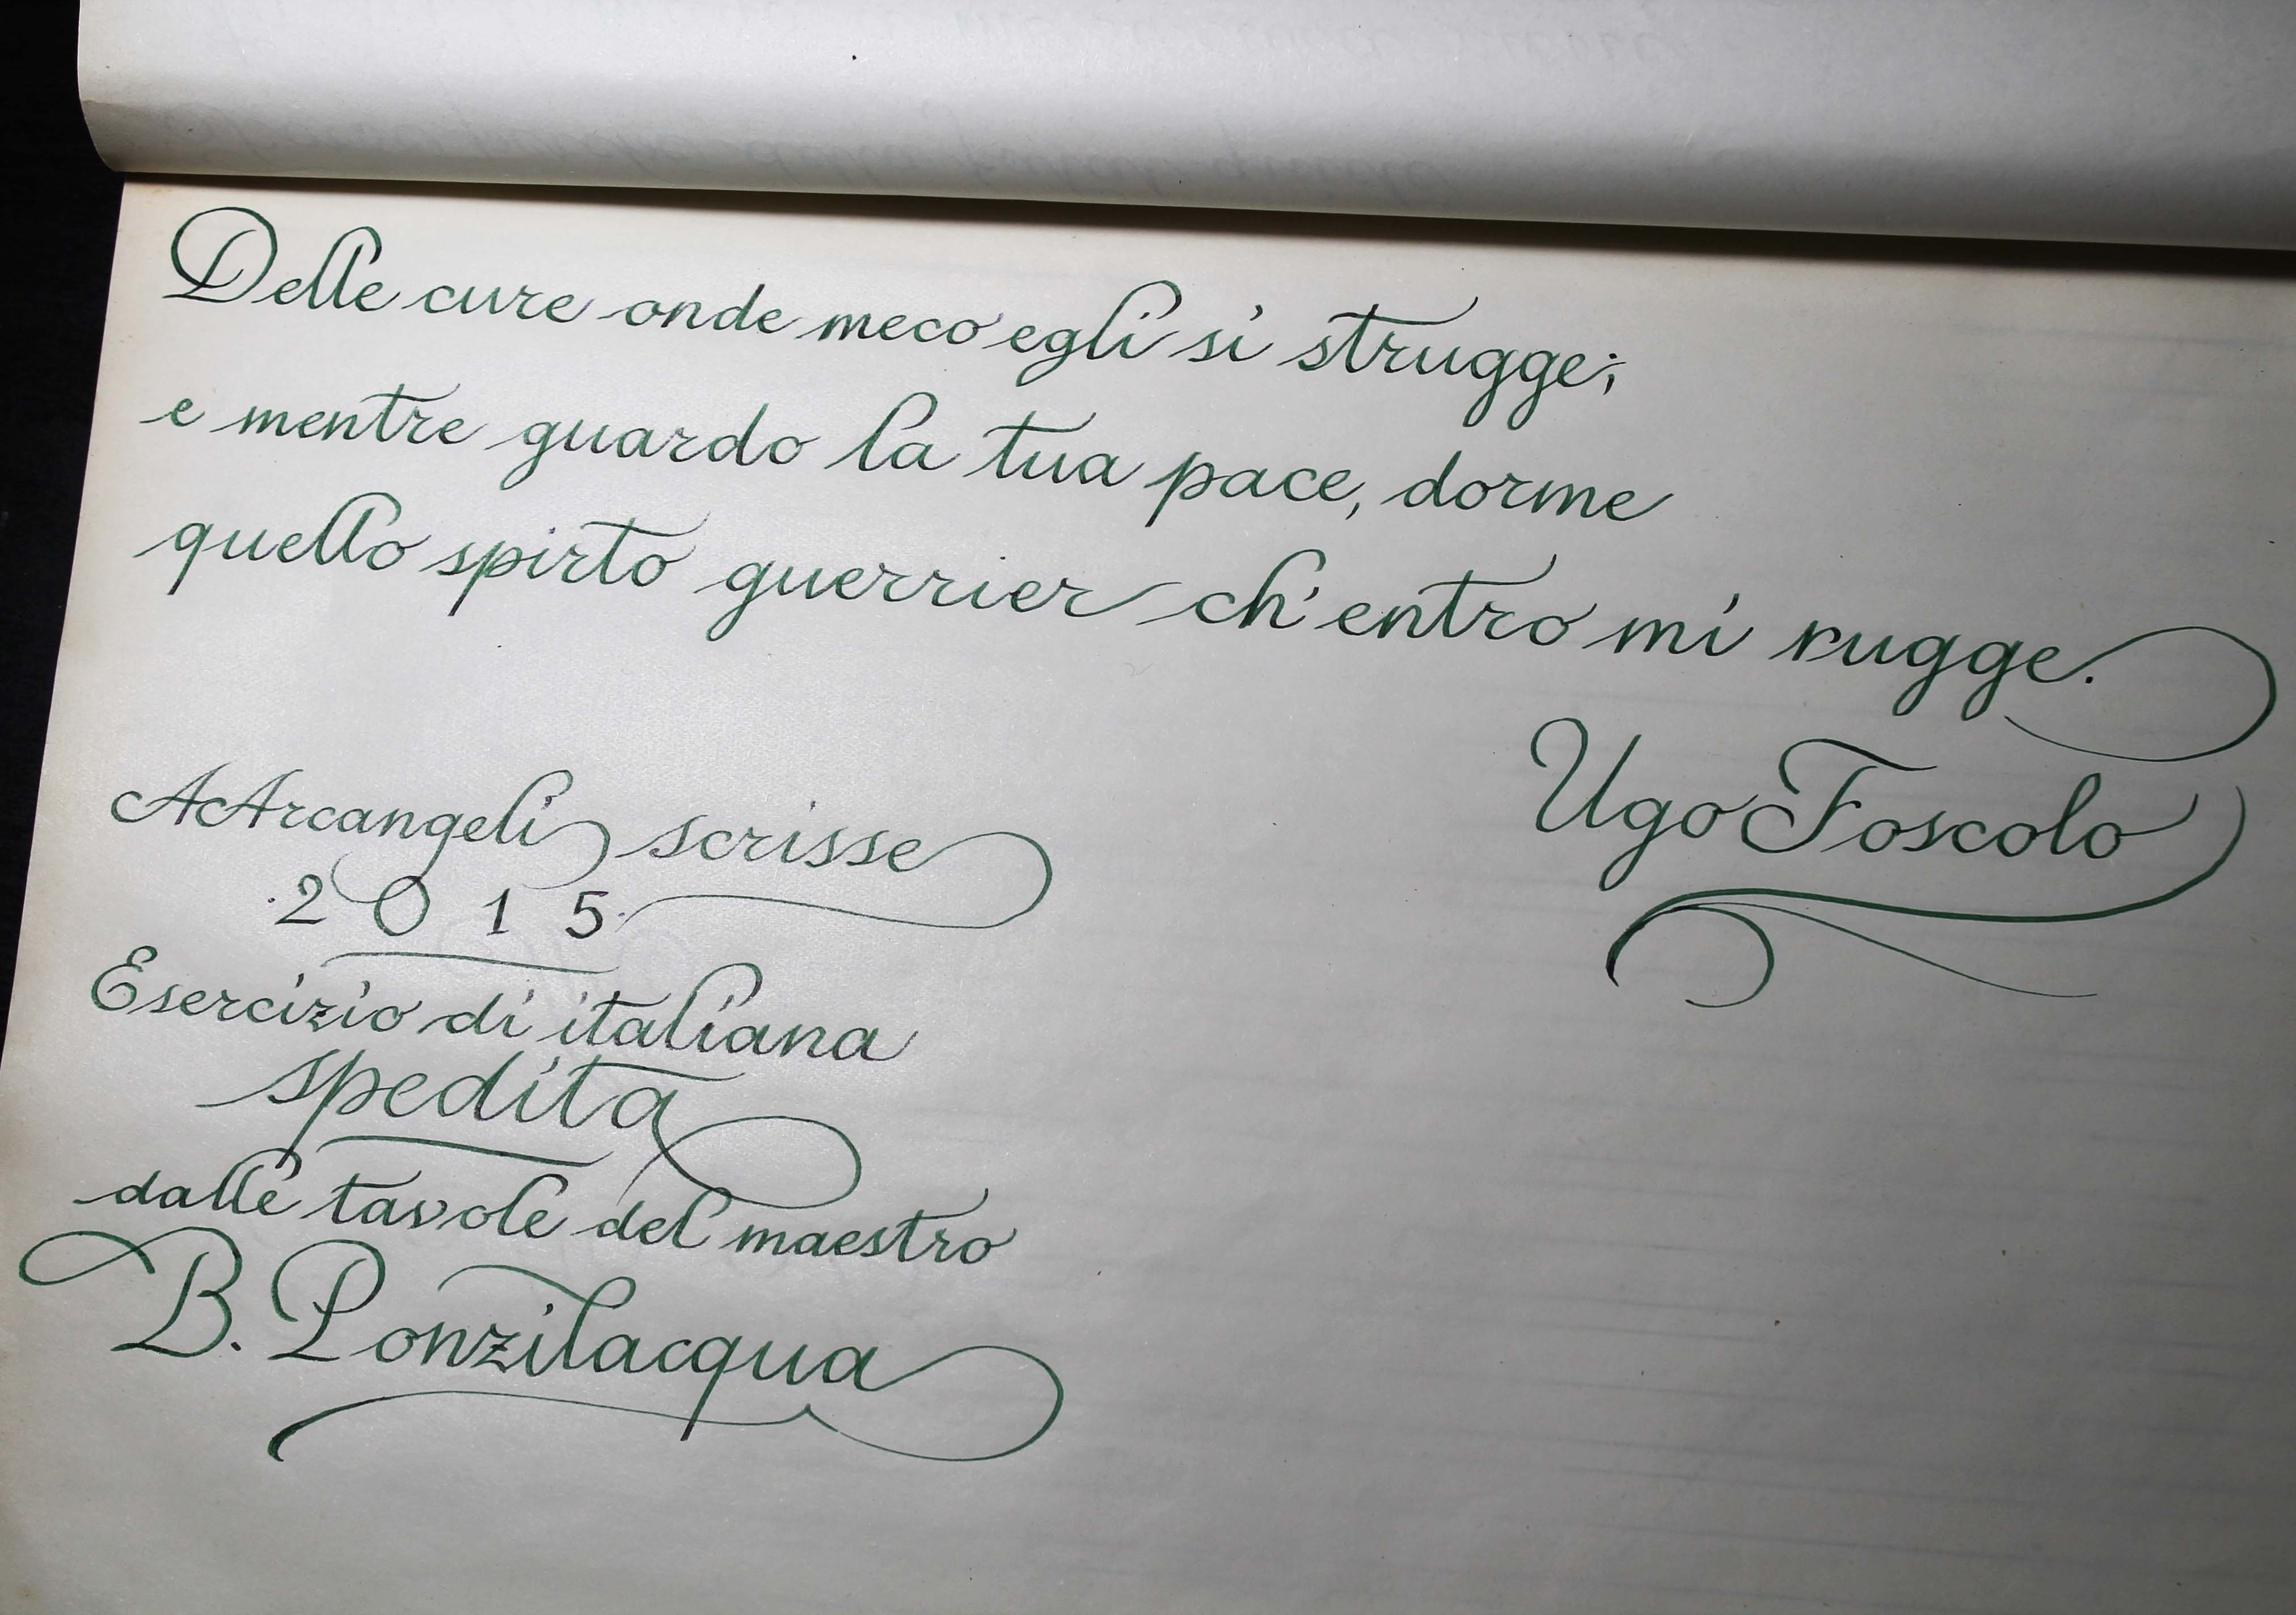 Delle cure onde meco egli si strugge;
e mentre guardo la tua pace, dorme
quello spirto guerrier ch'entro mi rugge.
Ugo Foscolo
AArcangeli scrisse
·2015·
Esercizio di italiana
spedita
dalle tavole del maestro
B. Ponzilacqua